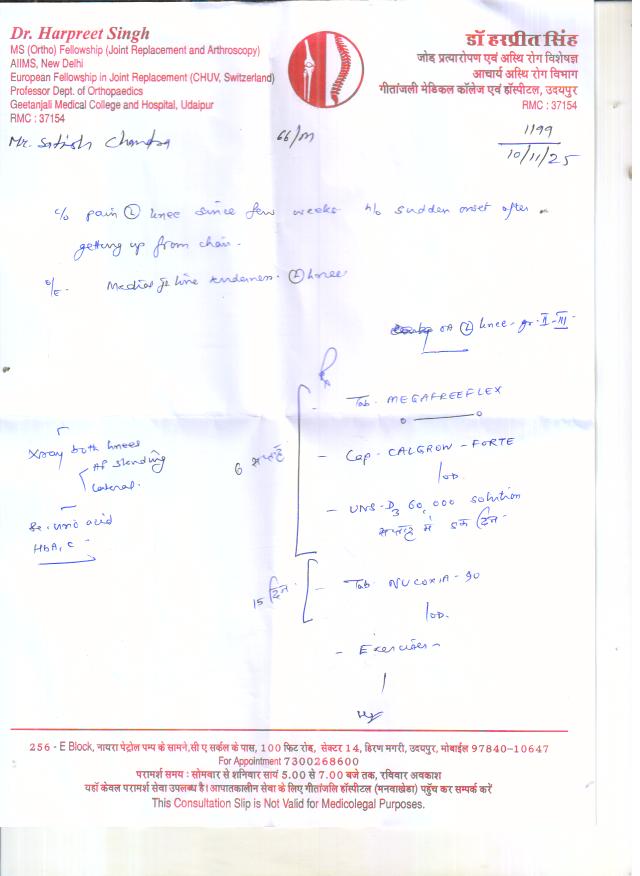 Dr. Harpreet Singh
MS (Ortho) Fellowship (Joint Replacement and Arthroscopy)
AIIMS, New Delhi
European Fellowship in Joint Replacement (CHUV, Switzerland)
Professor Dept. of Orthopaedics
Geetanjali Medical College and Hospital, Udaipur
RMC : 37154
डॉ हरप्रीत सिंह
जोड़ प्रत्यारोपण एवं अस्थि रोग विशेषज्ञ
आचार्य अस्थि रोग विभाग
गीतांजली मेडिकल कॉलेज एवं हॉस्पीटल, उदयपुर
RMC : 37154
Mr. Satish Chandra 66/M
1199
10/11/25
c/o pain (L) knee since few weeks h/o sudden onset after
getting up from chair.
O/E. Medial jt line tenderness. (L) knee
OA (L) knee - gr. II-III
Rx
Tab. MEGAFREEFLEX
6 सप्ताह
- Cap. CALGROW - FORTE
1 OD.
- UNS-D3 60,000 solution
सप्ताह में एक दिन
Xray both knees
AP standing
lateral.
Se. uric acid
HbA1C
15 दिन
- Tab NUCOXIA - 90
1 OD.
- Exercises
256 - E Block, नायरा पेट्रोल पम्प के सामने, सी ए सर्कल के पास, 100 फिट रोड़, सेक्टर 14, हिरण मगरी, उदयपुर, मोबाईल 97840-10647
For Appointment 7300268600
परामर्श समय : सोमवार से शनिवार सायं 5.00 से 7.00 बजे तक, रविवार अवकाश
यहाँ केवल परामर्श सेवा उपलब्ध है। आपातकालीन सेवा के लिए गीतांजलि हॉस्पीटल (मनवाखेड़ा) पहुँच कर सम्पर्क करें
This Consultation Slip is Not Valid for Medicolegal Purposes.